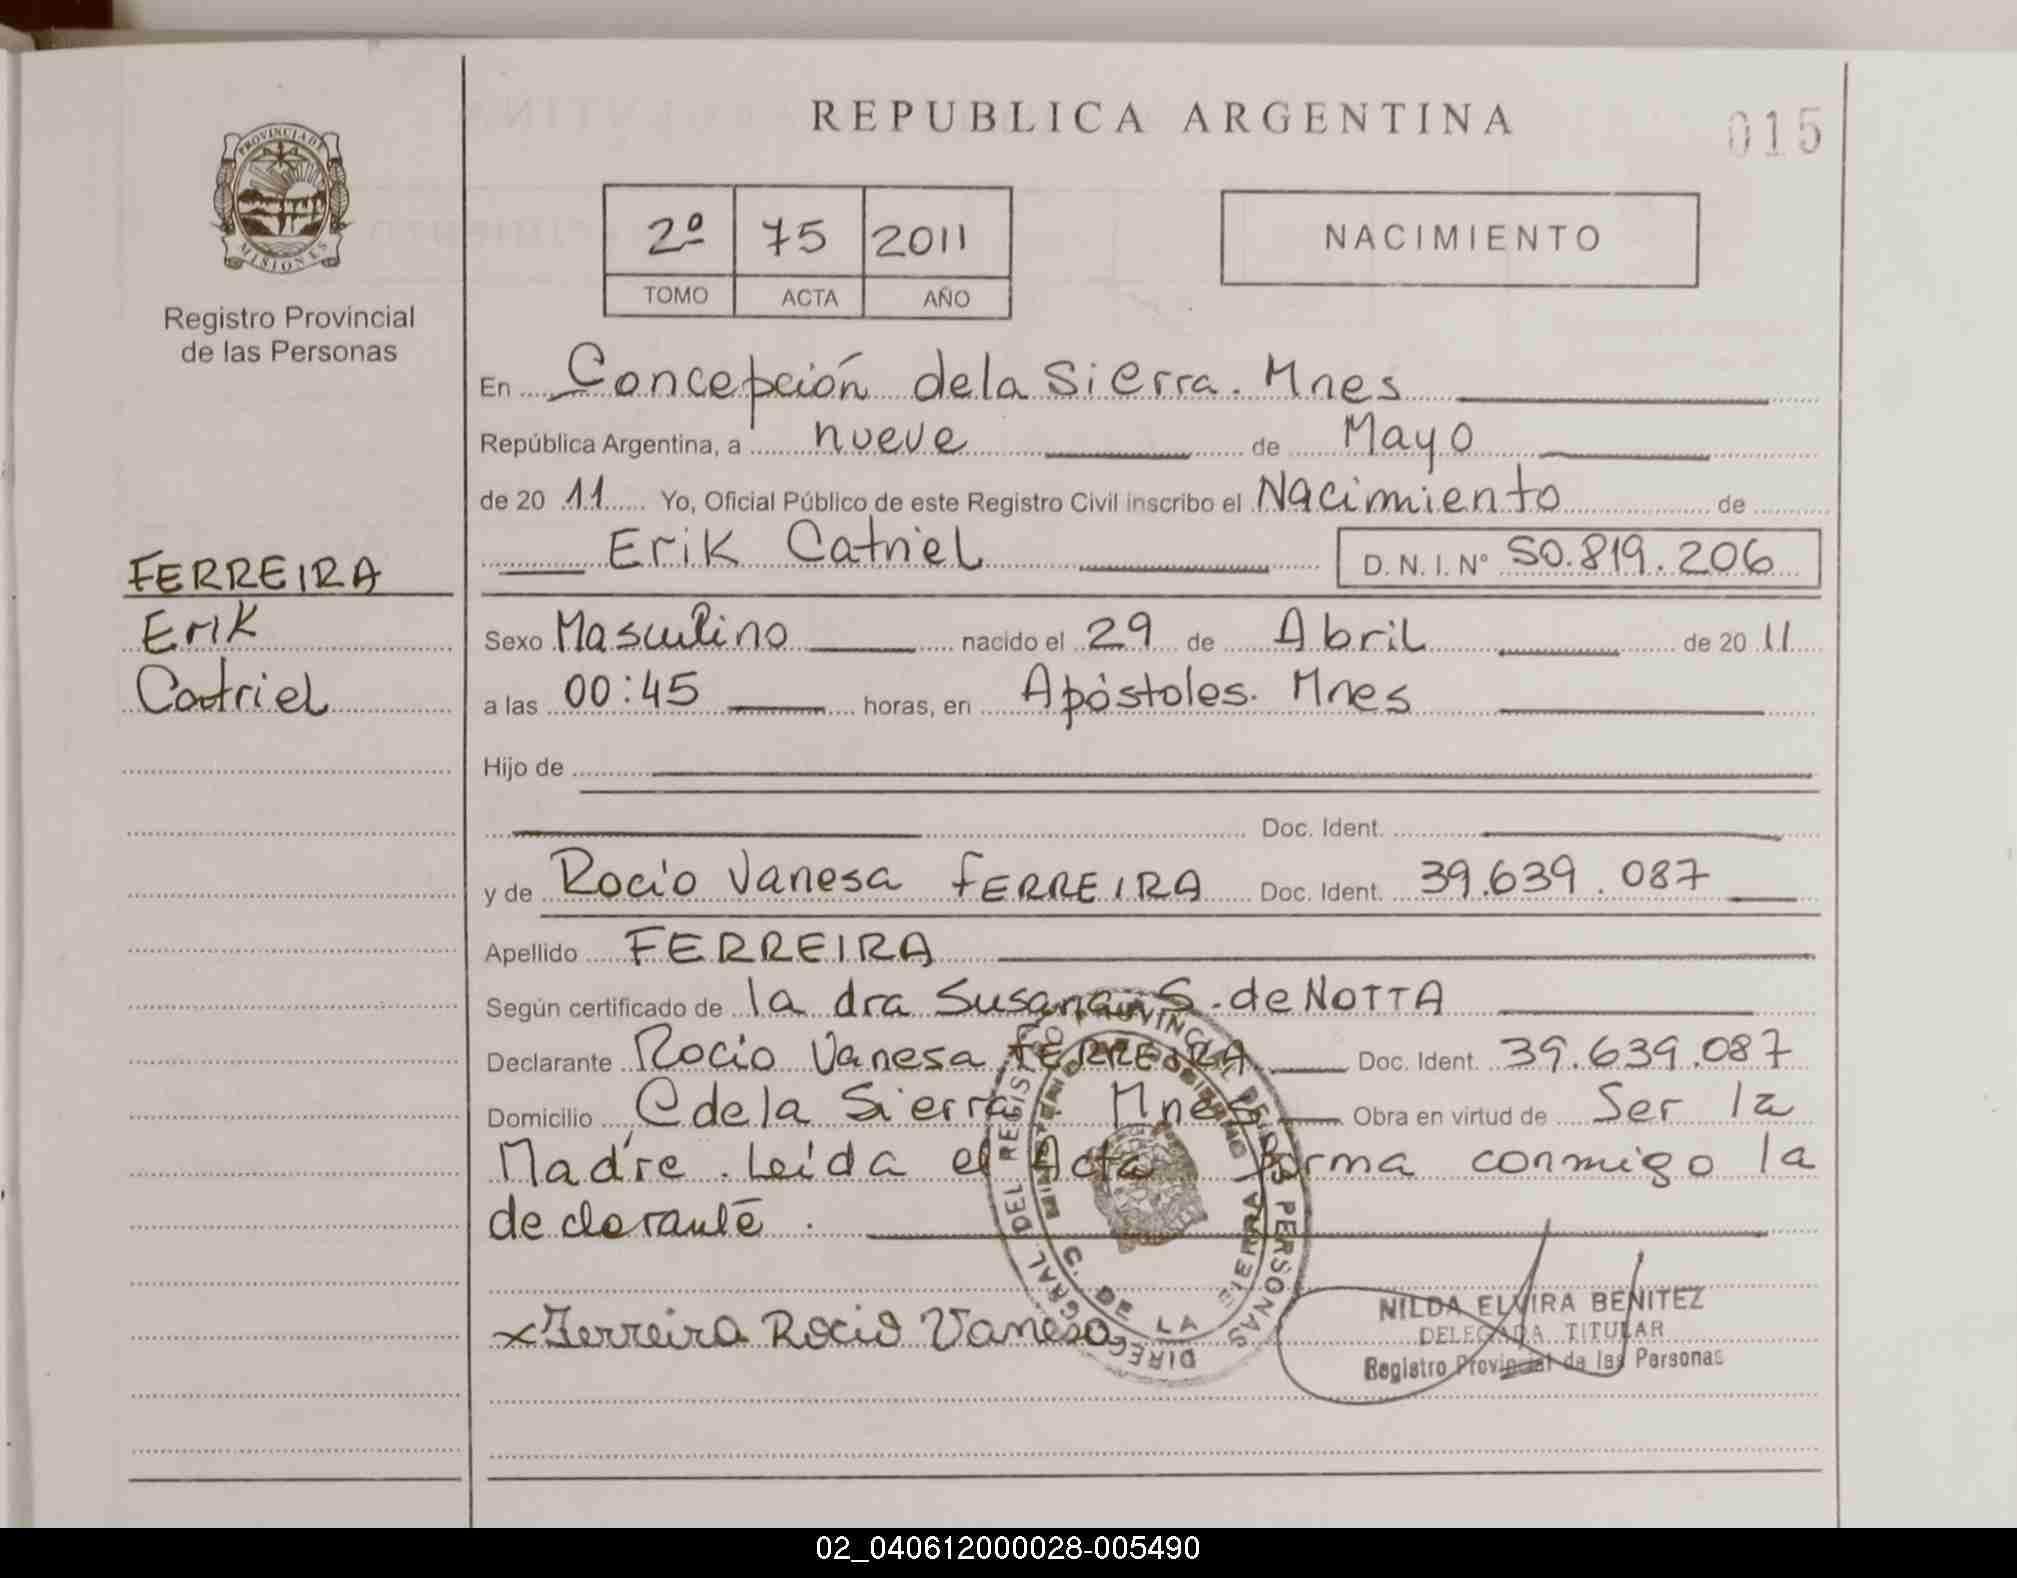 REPUBLICA ARGENTINA
015
PROVINCIA DE
MISIONES
Registro Provincial
de las Personas
2º 75 2011
TOMO ACTA AÑO
NACIMIENTO
En Concepción de la Sierra. Mnes
República Argentina, a nueve de Mayo
de 20 11 Yo, Oficial Público de este Registro Civil inscribo el Nacimiento de
Erik Catriel D. N. I. Nº 50.819.206
FERREIRA
Erik
Catriel
Sexo Masculino nacido el 29 de Abril de 20 11
a las 00:45 horas, en Apóstoles. Mnes
Hijo de
Doc. Ident.
y de Rocio Vanesa FERREIRA Doc. Ident. 39.639.087
Apellido FERREIRA
Según certificado de la dra Susana S. de NOTTA
Declarante Rocio Vanesa FERREIRA Doc. Ident. 39.639.087
Domicilio C de la Sierra. Mnes Obra en virtud de Ser la
Madre. Leída el Acta firma conmigo la
declarante.
x Ferreira Rocio Vanesa
DIREC. GRAL DEL REGISTRO PROVINCIAL DE LAS PERSONAS
C. DE LA SIERRA
NILDA ELVIRA BENITEZ
DELEGADA TITULAR
Registro Provincial de las Personas
02_040612000028-005490